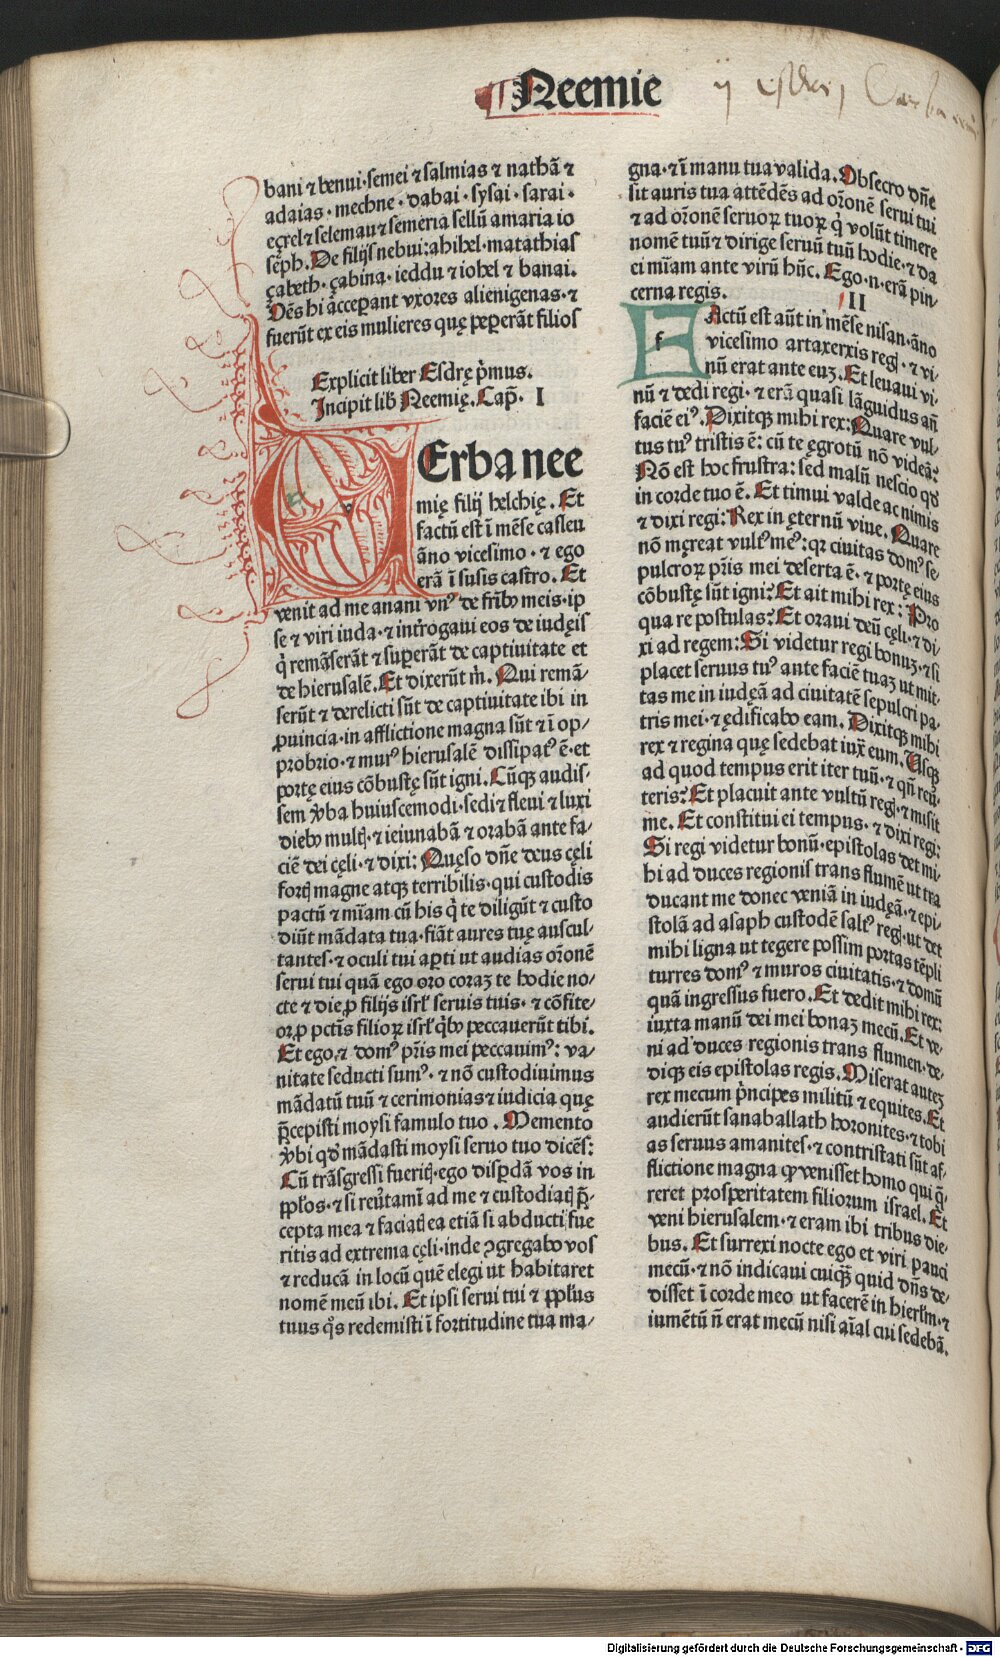 Neemie
bani ⁊ benui·semei ⁊ salmias ⁊ nathā ⁊
adaias·mechne·dabai·sysai·sarai·
eçrel ⁊ selemau ⁊ semeria sellū amaria io
seph. De filijs nebui: ahihel·matathias
çabeth·çabina·ieddu ⁊ iohel ⁊ banai.
Oēs hi acceperant vxores alienigenas·⁊
fuerūt ex eis mulieres quę pepererāt filios
Explicit liber Esdrę p̄mus.
Incipit lib Neemię. Cap̄· I
Erba nee
mię filij helchię. Et
factū est ī mēse casleu
āno vicesimo·⁊ ego
erā ī susis castro. Et
venit ad me anani vnꝰ de frībꝰ meis·ip
se ⁊ viri iuda·⁊ introgaui eos de iudęis
q̇ remāserāt ⁊ superāt de captiuitate et
de hierusalē. Et dixerūt m̄. Qui remā⸗
serūt ⁊ derelicti sūt de captiuitate ibi in
ꝓuincia·in afflictione magna sūt ⁊ ī op⸗
probrio·⁊ murꝰ hierusalē dissipatꝰ ē·et
portę eius cōbustę sūt igni. Cūqꝫ audis⸗
sem v̄ba huiuscemodi·sedi ⁊ fleui ⁊ luxi
diebꝰ multꝭ·⁊ ieiunabā ⁊ orabā ante fa⸗
ciē dei cęli·⁊ dixi: Quęso dn̄e deus cęli
fortꝭ magne atqꝫ terribilis·qui custodis
pactū ⁊ mīam cū his q̇ te diligūt ⁊ custo
diūt mādata tua·fiāt aures tuę auscul⸗
tantes·⁊ oculi tui apti ut audias or̄onē
serui tui quā ego oro coraꝫ te hodie no⸗
cte ⁊ die ꝓ filijs isrl̄ seruis tuis·⁊ cōfite⸗
or ꝓ pctīs filioꝝ isrl̄ q̇bꝰ peccauerūt tibi.
Et ego·⁊ domꝰ pr̄is mei peccauimꝰ: va⸗
nitate seducti sumꝰ·⁊ nō custodiuimus
mādatū tuū ⁊ cerimonias ⁊ iudicia quę
p̄cepisti moysi famulo tuo. Memento
v̄bi qď mādasti moysi seruo tuo dicēs:
Cū trāsgressi fueritꝭ·ego disp̲dā vos in
ppl̄os·⁊ si reūtaminī ad me ⁊ custodiatꝭ p̄⸗
cepta mea ⁊ faciatꝭ ea etiā si abducti fue
ritis ad extrema cęli·inde ꝯgregabo vos
⁊ reducā in locū quē elegi ut habitaret
nomē meū ibi. Et ipsi serui tui ⁊ ppl̄us
tuus q̊s redemisti ī fortitudine tua ma⸗
gna·⁊ ī manu tua valida. Obsecro dn̄e
sit auris tua attēdēs ad or̄onē serui tui
⁊ ad or̄onē seruoꝝ tuoꝝ q̇ volūt timere
nomē tuū ⁊ dirige seruū tuū hodie·⁊ da
ei mīam ante virū hūc. Ego·n·erā pin⸗
cerna regis. II
f
Actū est aūt in mēse nisan·āno
vicesimo artaxerxis regꝭ·⁊ vi⸗
nū erat ante euꝫ. Et leuaui vi⸗
nū ⁊ dedi regi·⁊ erā quasi lāguidus an̄
faciē eiꝰ. Dixitqꝫ mihi rex: Quare vul⸗
tus tuꝰ tristis ē: cū te ęgrotū nō videā?
Nō est hoc frustra: sed malū nescio qď
in corde tuo ē. Et timui valde ac nimis
⁊ dixi regi: Rex in ęternū viue. Quare
nō męreat vultꝰ meꝰ: qꝛ ciuitas domꝰ se⸗
pulcroꝝ pr̄is mei deserta ē·⁊ portę eius
cōbustę sūt igni? Et ait mihi rex: Pro
qua re postulas? Et oraui deū cęli·⁊ di⸗
xi ad regem: Si videtur regi bonuꝫ·⁊ si
placet seruus tuꝰ ante faciē tuaꝫ ut mit⸗
tas me in iudęā ad ciuitatē sepulcri pa⸗
tris mei·⁊ ędificabo eam. Dixitqꝫ mihi
rex ⁊ regina quę sedebat iux̄ eum. Usqꝫ
ad quod tempus erit iter tuū·⁊ qn̄ reū⸗
teris? Et placuit ante vultū regꝭ·⁊ misit
me. Et constitui ei tempus·⁊ dixi regi:
Si regi videtur bonū·epistolas det mi⸗
hi ad duces regionis trans flumē ut tra
ducant me donec veniā in iudęā·⁊ epi⸗
stolā ad asaph custodē saltꝰ regꝭ·ut det
mihi ligna ut tegere possim portas tēpli
turres domꝰ ⁊ muros ciuitatis·⁊ domū
quā ingressus fuero. Et dedit mihi rex:
iuxta manū dei mei bonaꝫ mecū. Et ve⸗
ni ad duces regionis trans flumen·de⸗
diqꝫ eis epistolas regis. Miserat auteꝫ
rex mecum p̄ncipes militū ⁊ equites. Et
audierūt sanaballath horonites·⁊ tobi
as seruus amanites·⁊ contristati sūt af⸗
flictione magna ꝙ venisset homo qui q̄⸗
reret prosperitatem filiorum israel. Et
veni hierusalem·⁊ eram ibi tribus die⸗
bus. Et surrexi nocte ego et viri pauci
mecū·⁊ nō indicaui cuiq̄ꝫ quid dn̄s de⸗
disset ī corde meo ut facerē in hierl̄m·⁊
iumētū n̄ erat mecū nisi aīal cui sedebā.
Digitalisierung gefördert durch die Deutsche Forschungsgemeinschaft - DFG